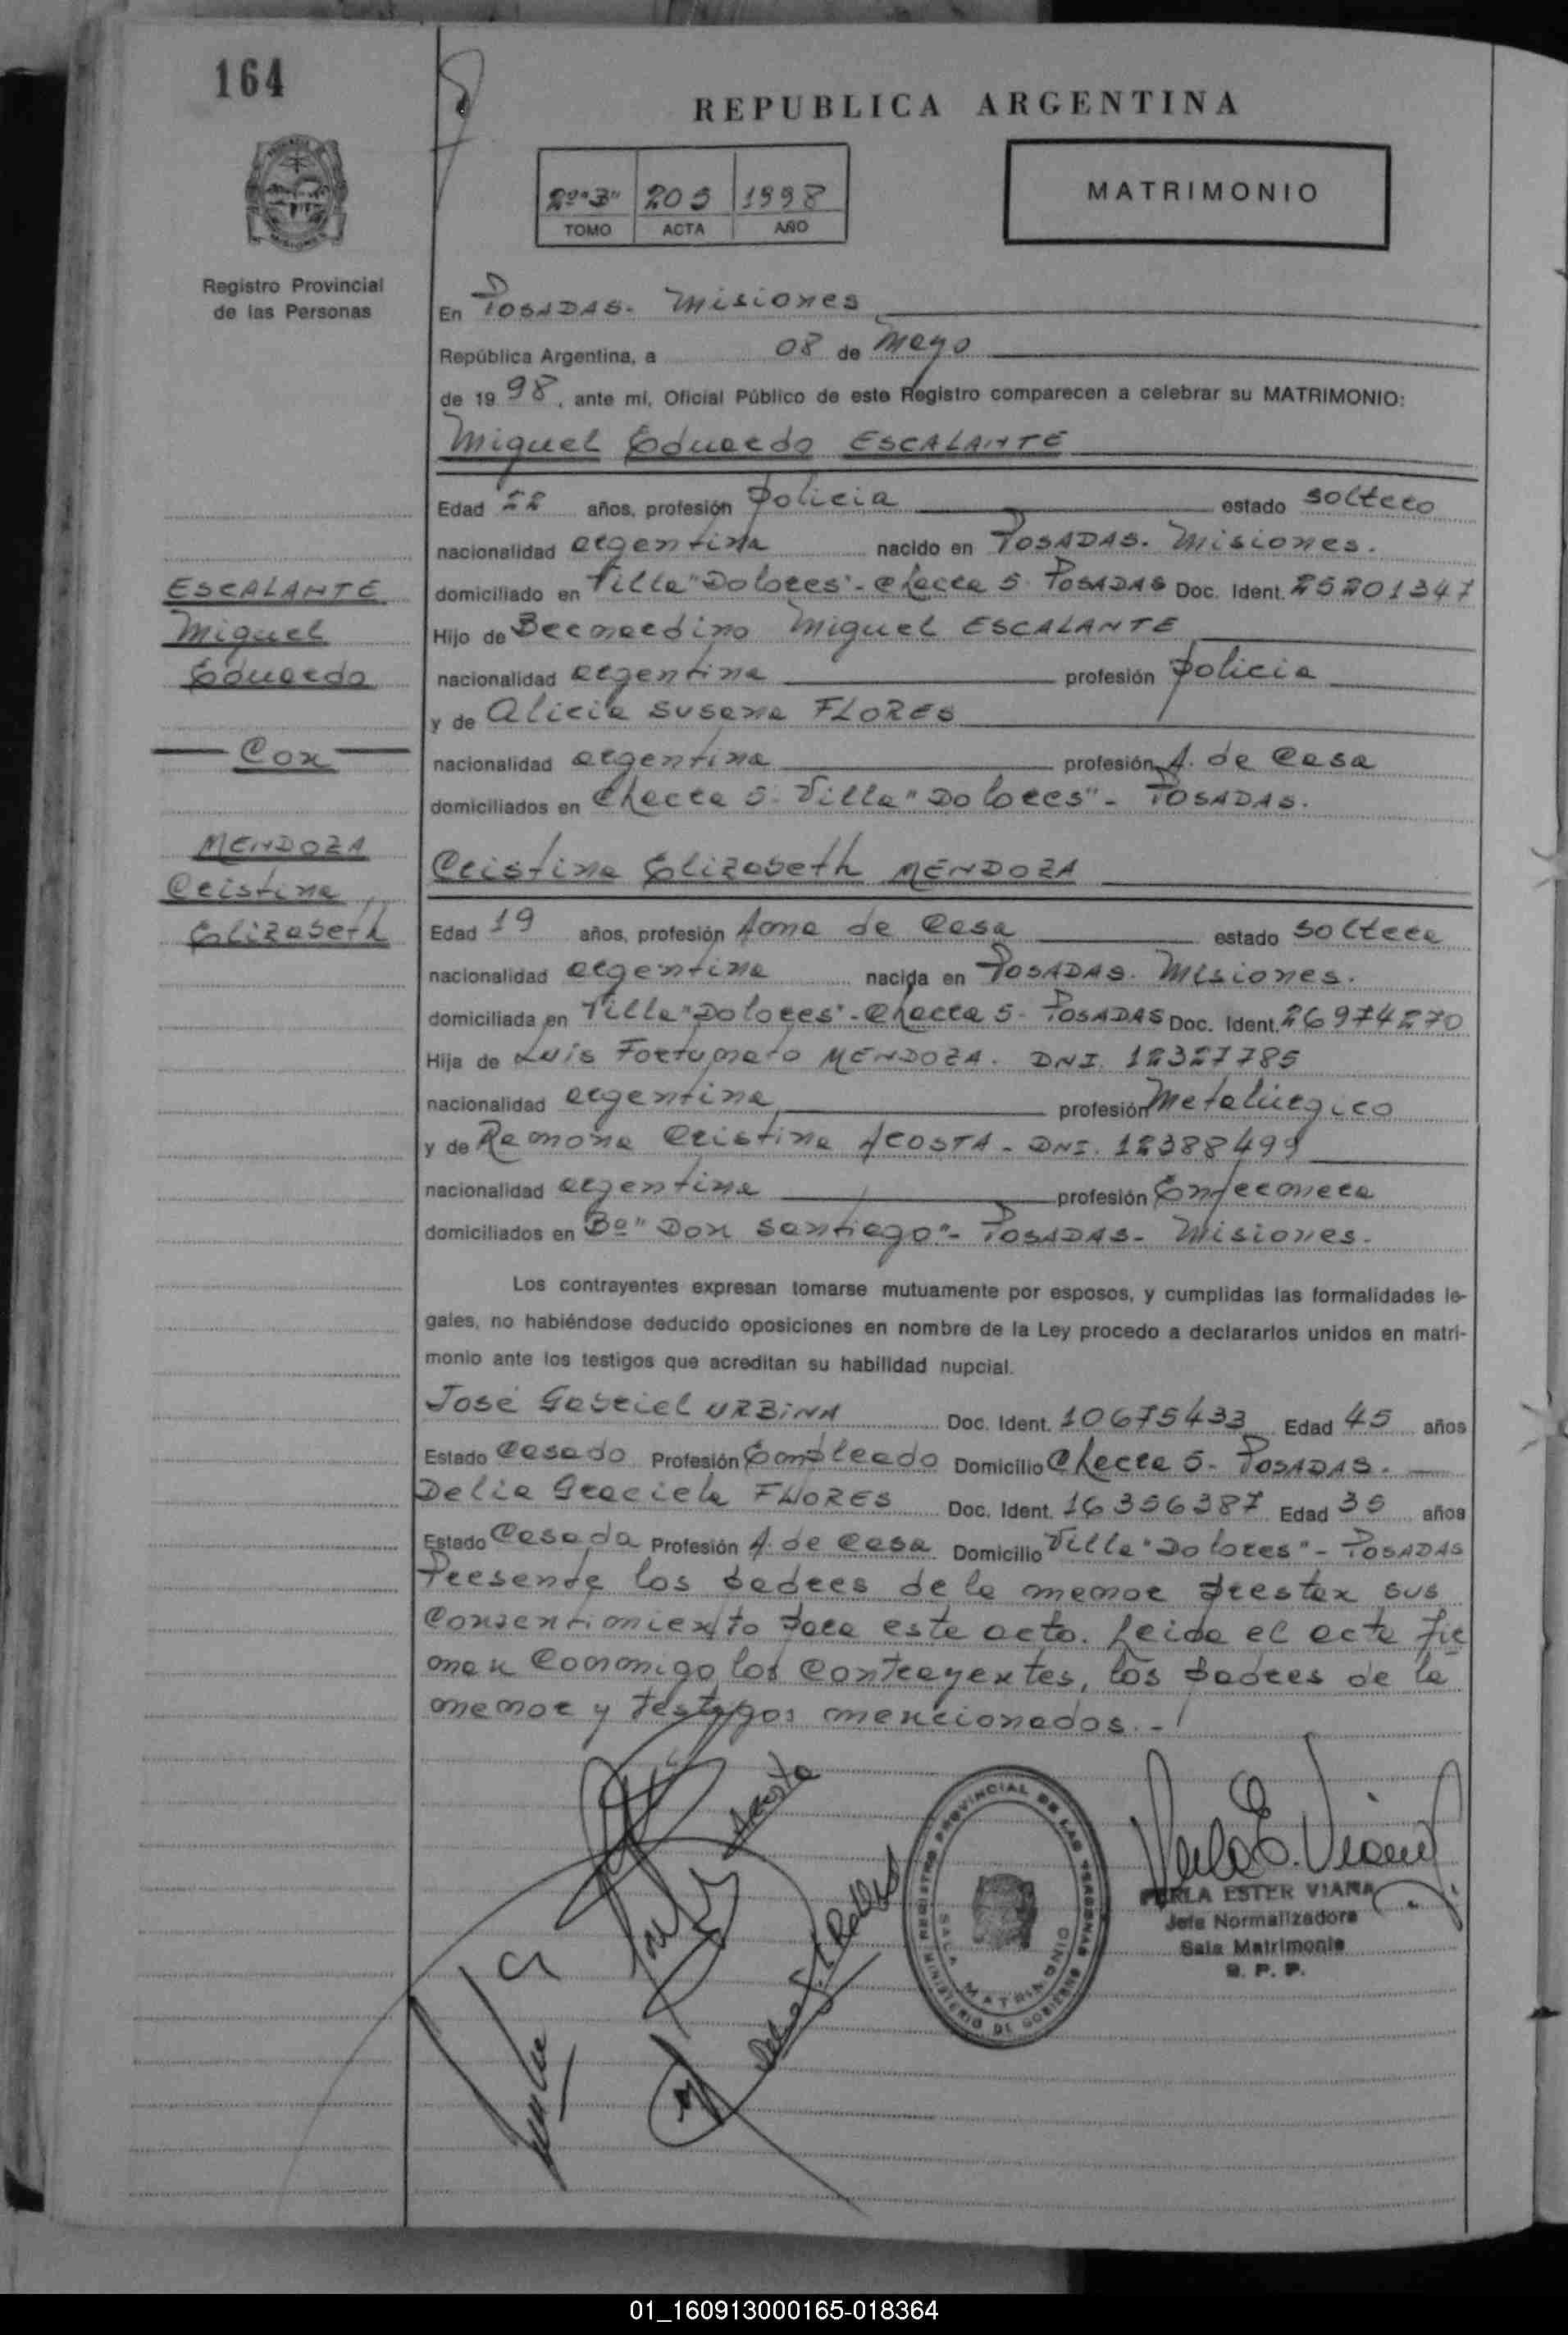 164
REPUBLICA ARGENTINA
2º "3" 205 1998
TOMO ACTA AÑO
MATRIMONIO
Registro Provincial
de las Personas
En POSADAS. Misiones
República Argentina, a 08 de Mayo
de 19 98, ante mí, Oficial Público de este Registro comparecen a celebrar su MATRIMONIO:
Miguel Eduardo ESCALANTE
Edad 22 años, profesión Policia estado soltero
nacionalidad argentina nacido en POSADAS. Misiones.
domiciliado en Villa "Dolores" - Chacra 5. POSADAS Doc. Ident. 25201347
Hijo de Bernardino Miguel ESCALANTE
nacionalidad argentina profesión policia
y de Alicia Susana FLORES
nacionalidad argentina profesión A. de Casa
domiciliados en Chacra 5. Villa "Dolores" - POSADAS.
ESCALANTE
Miguel
Eduardo
Con
MENDOZA
Cristina
Elizabeth
Cristina Elizabeth MENDOZA
Edad 19 años, profesión Ama de Casa estado soltera
nacionalidad argentina nacida en POSADAS. Misiones.
domiciliada en Villa "Dolores" - Chacra 5. POSADAS Doc. Ident. 26974270
Hija de Luis Fortunato MENDOZA. DNI. 12327785
nacionalidad argentina profesión Metalúrgico
y de Ramona Cristina ACOSTA - DNI. 12388499
nacionalidad argentina profesión Enfermera
domiciliados en Bº "Don Santiago" - POSADAS - Misiones.
Los contrayentes expresan tomarse mutuamente por esposos, y cumplidas las formalidades le-
gales, no habiéndose deducido oposiciones en nombre de la Ley procedo a declararlos unidos en matri-
monio ante los testigos que acreditan su habilidad nupcial.
José Gabriel URBINA Doc. Ident. 10675433 Edad 45 años
Estado Casado Profesión Empleado Domicilio Chacra 5. POSADAS.
Delia Graciela FLORES Doc. Ident. 16356387 Edad 35 años
Estado Casada Profesión A. de Casa Domicilio Villa "Dolores" - POSADAS
Presente los padres de la menor prestan sus
Consentimiento para este acto. Leida el acta fir
man Conmigo los Contrayentes, los padres de la
menor y testigos mencionados. -
Acosta
REGISTRO PROVINCIAL DE LAS PERSONAS
SALA MATRIMONIO
MINISTERIO DE GOBIERNO
Perla E. Viana
PERLA ESTER VIANA
Jefa Normalizadora
Sala Matrimonio
R. P. P.
01_160913000165-018364